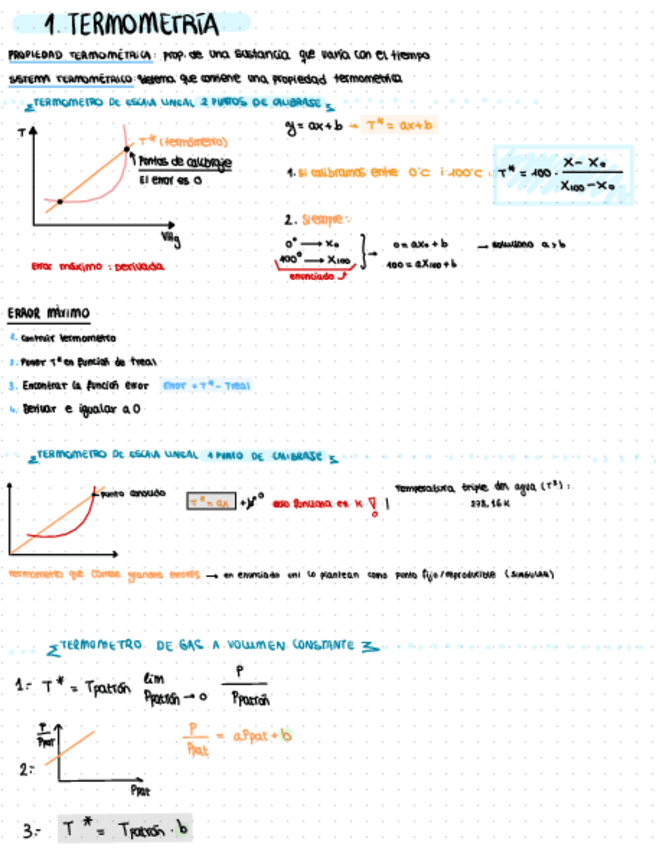 1. TERMOMETRÍA
PROPIEDAD TERMOMÉTRICA: prop. de una sustancia que varía con el tiempo
SISTEMA TERMOMÉTRICO: sistema que contiene una propiedad termométrica
TERMOMETRO DE ESCALA LINEAL 2 PUNTOS DE CALIBRAJE
T
T* (termómetro)
Puntos de calibraje
El error es 0
VHg
Error máximo: Derivada
y = ax+b → T* = ax+b
1. Si calibramos entre 0°C i 100°C: T* = 100 · (X - X₀) / (X₁₀₀ - X₀)
2. Siempre:
0° → X₀
100° → X₁₀₀
enunciado
0 = aX₀ + b
100 = aX₁₀₀ + b
→ soluciono a y b
ERROR MÁXIMO
1. Construir termómetro
2. Poner T* en función de Treal
3. Encontrar la función error Error = T* - Treal
4. Derivar e igualar a 0
TERMOMETRO DE ESCALA LINEAL 1 PUNTO DE CALIBRAJE
Punto conocido
T* = ax + b⁰ esto funciona en K !
Temperatura triple del agua (T³):
273,16 K
Termómetro que comete grandes errores → en enunciado lo plantean como punto fijo/reproducible (SINGULAR)
TERMOMETRO DE GAS A VOLUMEN CONSTANTE
1.- T* = Tpatrón lim Ppatrón → 0 P / Ppatrón
2.-
P / Ppat
Ppat
P / Ppat = aPpat + b
3.- T* = Tpatrón · b